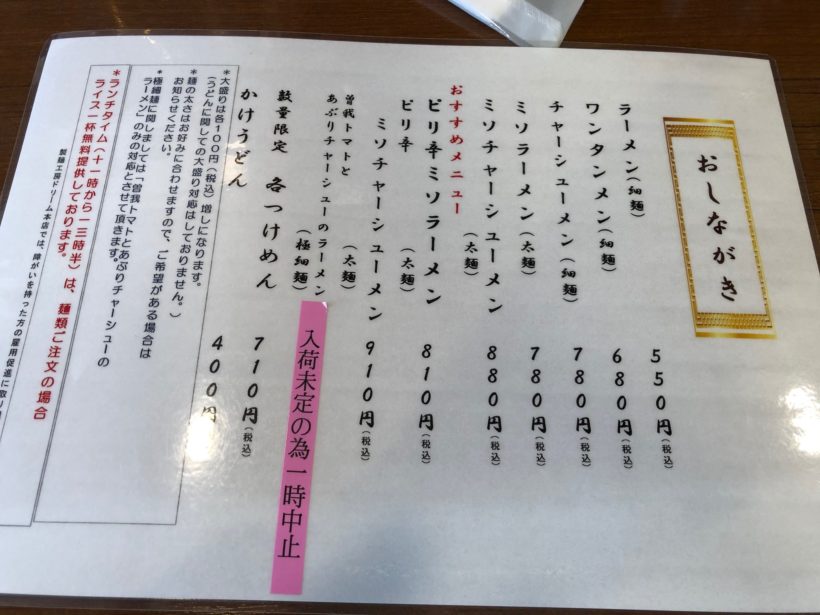 おしながき
ラーメン(細麺) 550円(税込)
ワンタンメン(細麺) 680円(税込)
チャーシューメン(細麺) 780円(税込)
ミソラーメン(太麺) 780円(税込)
ミソチャーシューメン(太麺) 880円(税込)
おすすめメニュー
ピリ辛ミソラーメン(太麺) 810円(税込)
ピリ辛
ミソチャーシューメン(太麺) 910円(税込)
曽我トマトと
あぶりチャーシューのラーメン(極細麺)
入荷未定の為一時中止
数量限定 各つけめん 710円(税込)
かけうどん 400円(税込)
*大盛りは各100円(税込)増しになります。
(うどんに関しての大盛り対応はしておりません。)
*麺の太さはお好みに合わせますので、ご希望がある場合は
お知らせください。
*極細麺に関しましては「曽我トマトとあぶりチャーシューの
ラーメン」のみの対応とさせて頂きます。
*ランチタイム(十一時から一三時半)は、麺類ご注文の場合
ライス一杯無料提供しております。
製麺工房ドリーム本店では、障がいを持った方の雇用促進に取り